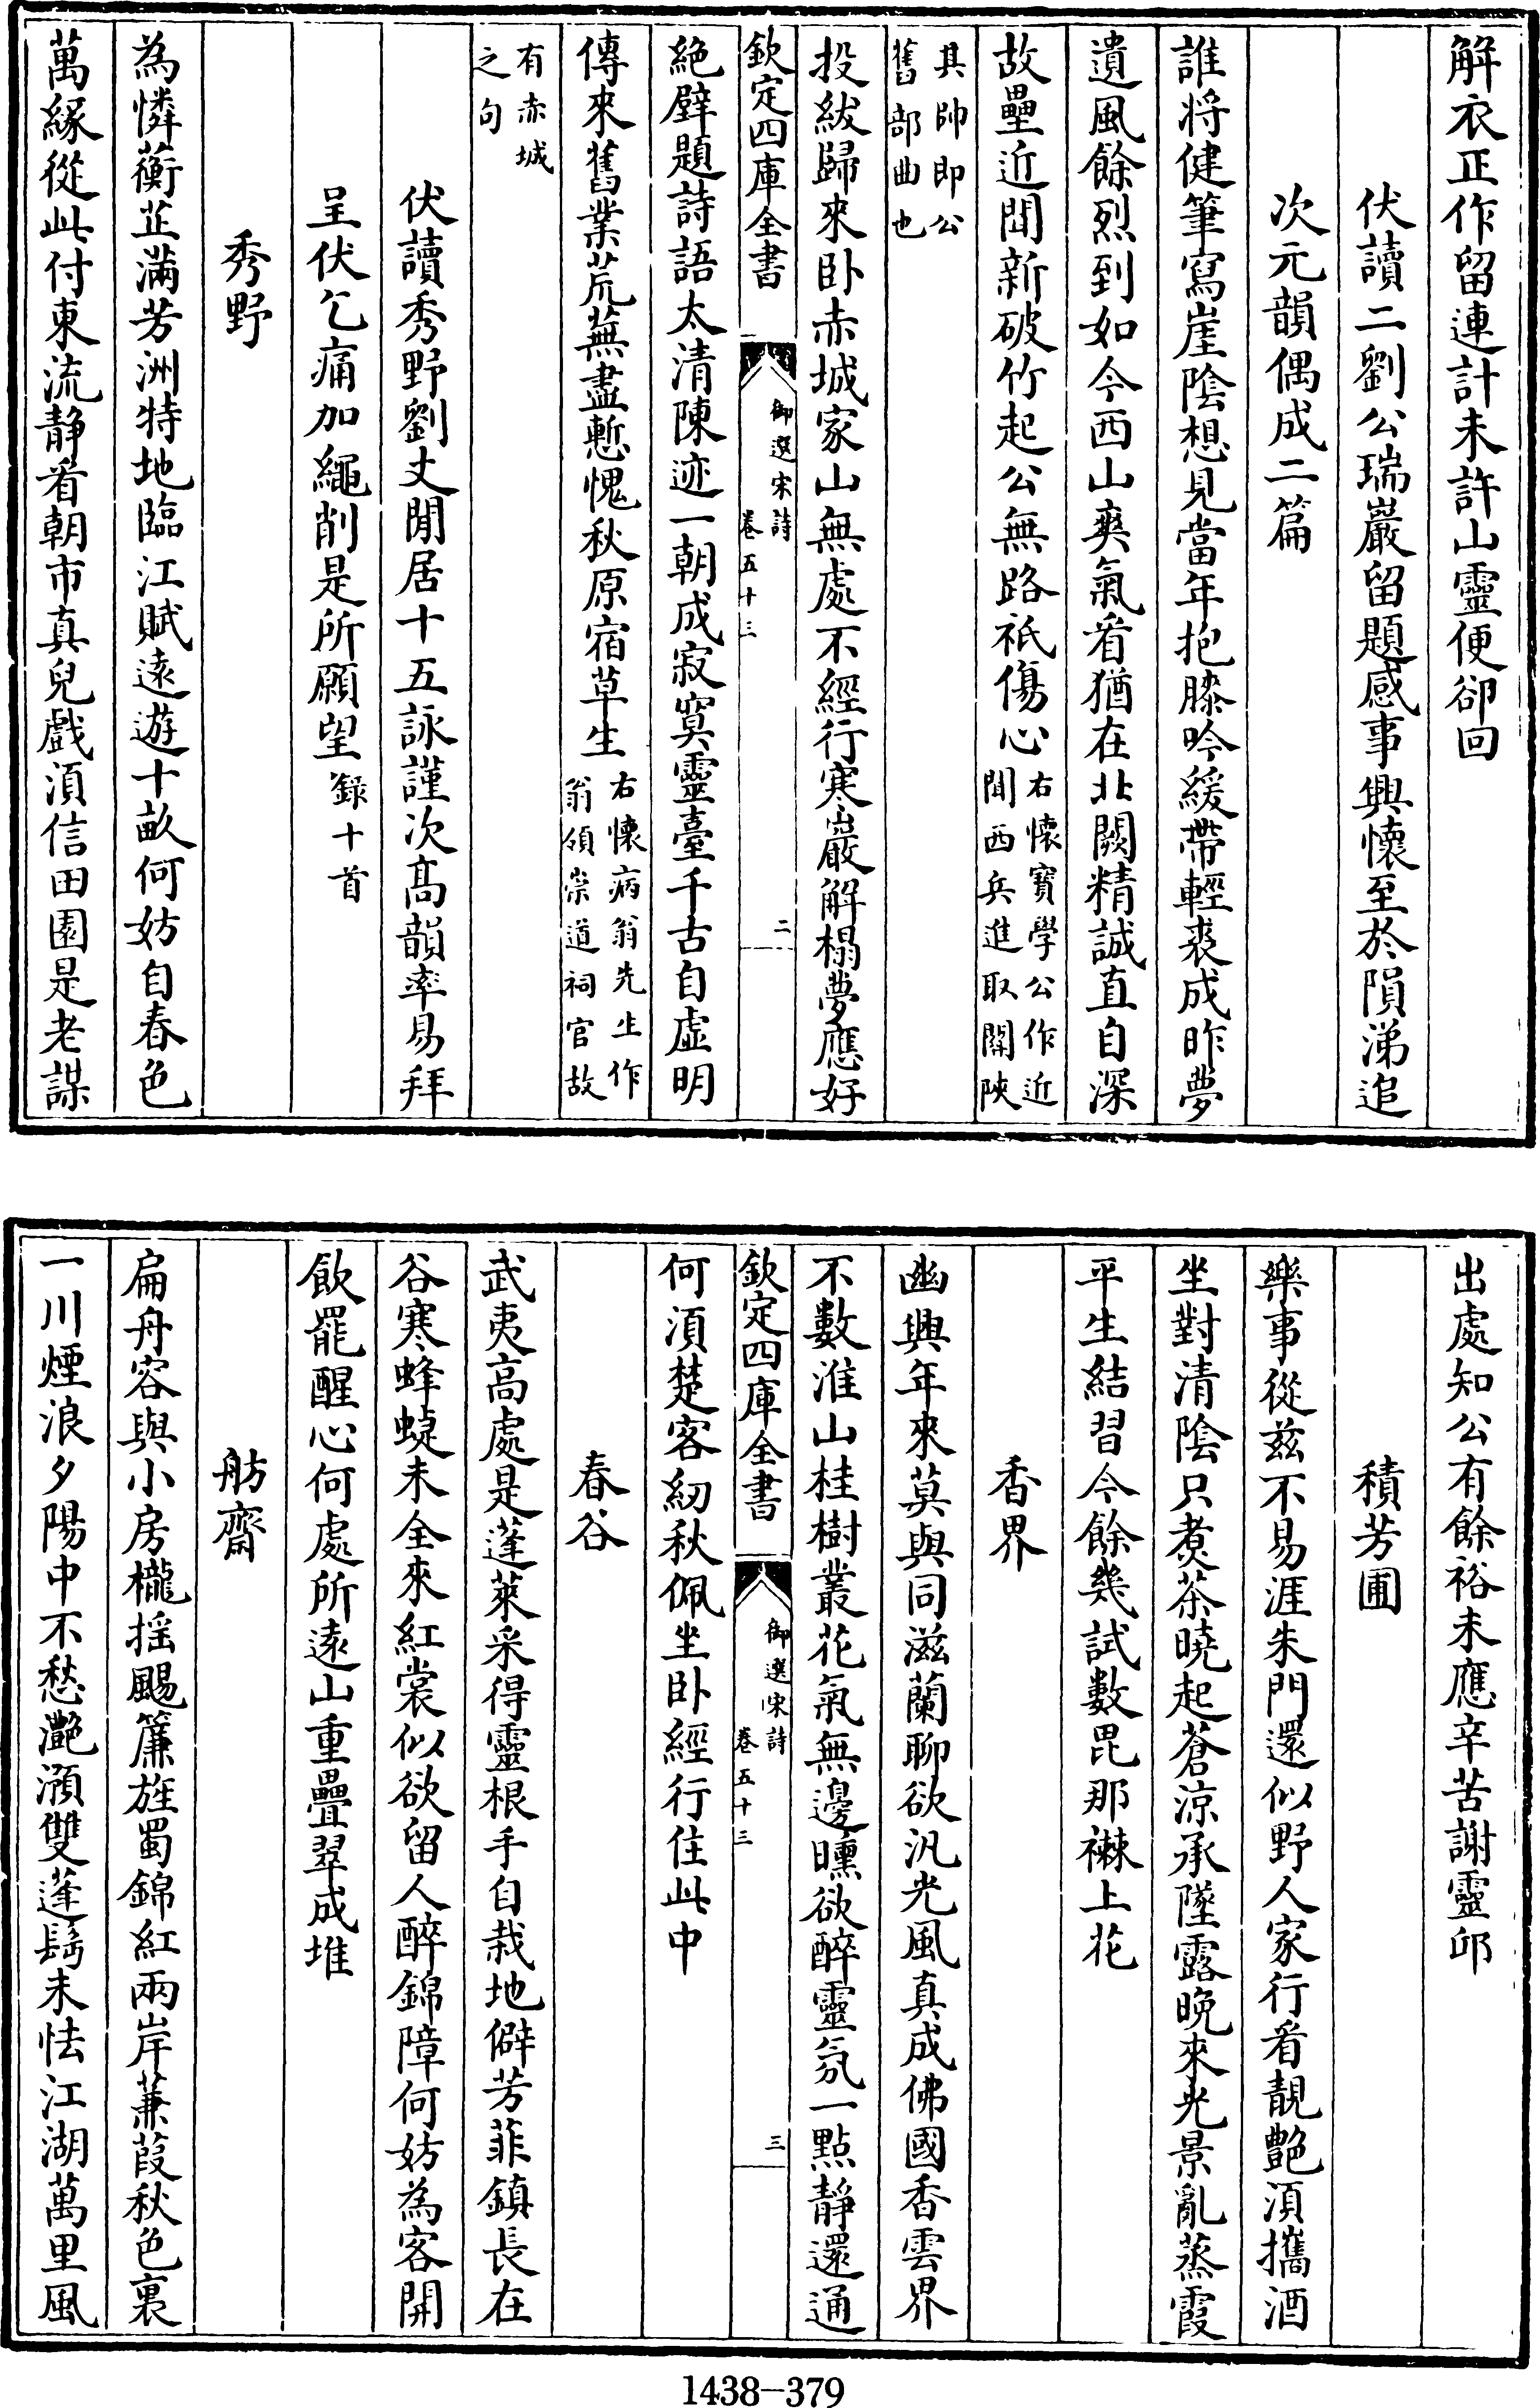 解衣正作留連計未許山靈便卻回
伏讀二劉公瑞巖留題感事興懷至於隕涕追
次元韻偶成二篇
誰将健筆寫崖陰想見當年抱膝吟緩帶輕裘成昨夢
遺風餘烈到如今西山爽氣看猶在北闕精誠直自深
故壘近聞新破竹起公無路祇傷心右懷寶學公作近
聞西兵進取關陝
其帥即公
舊部曲也
投紱歸來卧赤城家山無處不經行寒巖解榻夢應好
欽定四庫全書
御選宋詩
卷五十三
二
絶壁題詩語太清陳迹一朝成寂寞靈臺千古自虚明
傳來舊業荒蕪盡慙愧秋原宿草生右懷病翁先生作
翁領崇道祠官故
有赤城
之句
伏讀秀野劉丈閒居十五詠謹次高韻率易拜
呈伏乞痛加繩削是所願望録十首
秀野
為憐蘅芷滿芳洲特地臨江賦遠遊十畝何妨自春色
萬緣從此付東流静看朝市真兒戲湏信田園是老謀
出處知公有餘裕未應辛苦謝靈邱
積芳圃
樂事從兹不易涯朱門還似野人家行看靚艶湏攜酒
坐對清陰只煮茶曉起蒼凉承墜露晚來光景亂蒸霞
平生結習今餘幾試數毘那襋上花
香界
幽興年來莫與同滋蘭聊欲汎光風真成佛國香雲界
不數淮山桂樹叢花氣無邊曛欲醉靈氛一點静還通
欽定四庫全書
御選宋詩
卷五十三
三
何湏楚客紉秋佩坐卧經行住此中
春谷
武夷高處是蓬萊采得靈根手自栽地僻芳菲鎮長在
谷寒蜂蜨未全來紅裳似欲留人醉錦障何妨為客開
飲罷醒心何處所遠山重疊翠成堆
舫齋
扁舟容與小房櫳摇颺簾旌蜀錦紅兩岸蒹葭秋色裏
一川煙浪夕陽中不愁灔澦雙蓬鬂未怯江湖萬里風
1438-379